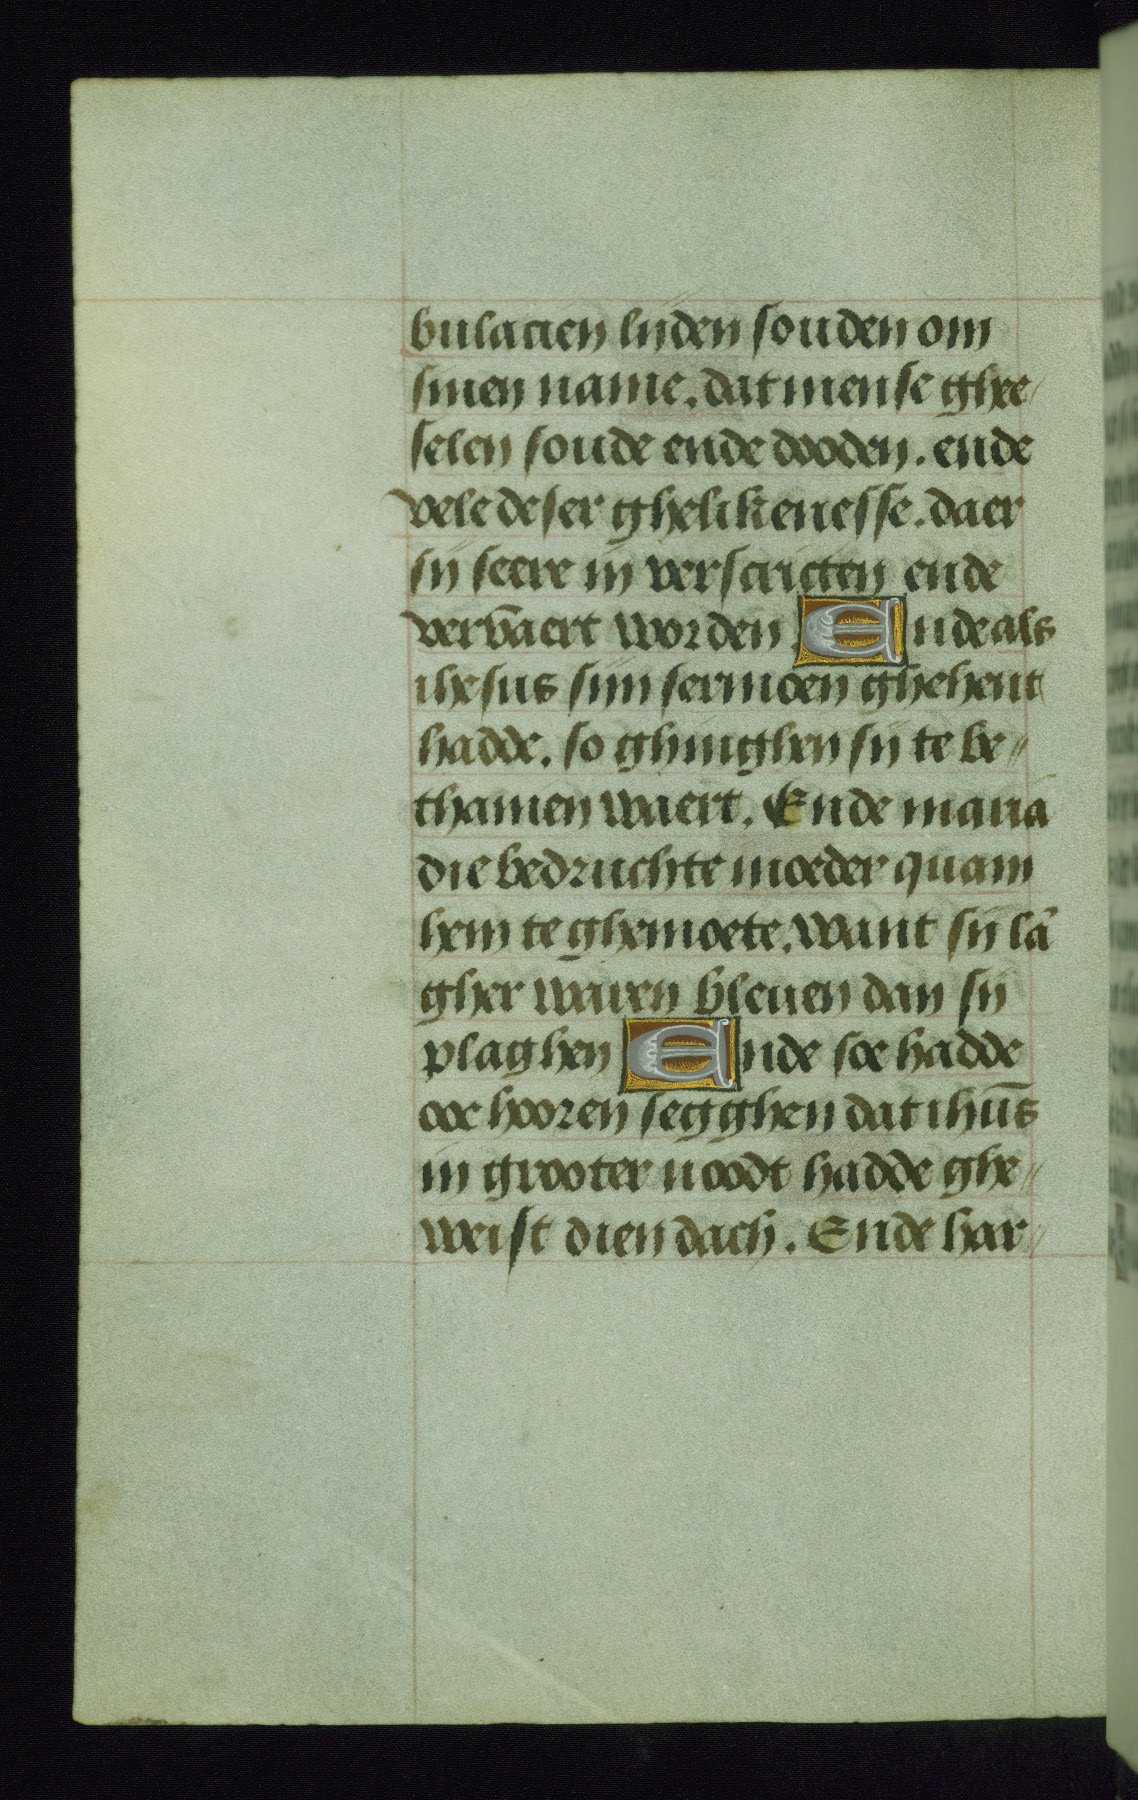 bulacien lijden souden om
sinen name. dat mense ghee-
selen soude ende dooden. ende
vele deser ghelikenesse. daer
sij seere in verscricten ende
vervaert worden. Ende als
ihesus sijn sermoen ghehent
hadde. so ghinghen sij te be-
thanien waert. Ende maria
die bedruchte moeder quam
hem te ghemoete. want sij lā
gher waren bleuen dan sij
plaghen Ende soe hadde
ooc hooren segghen dat ihūs
in grooter noodt hadde ghe-
weist dien dach. Ende har-